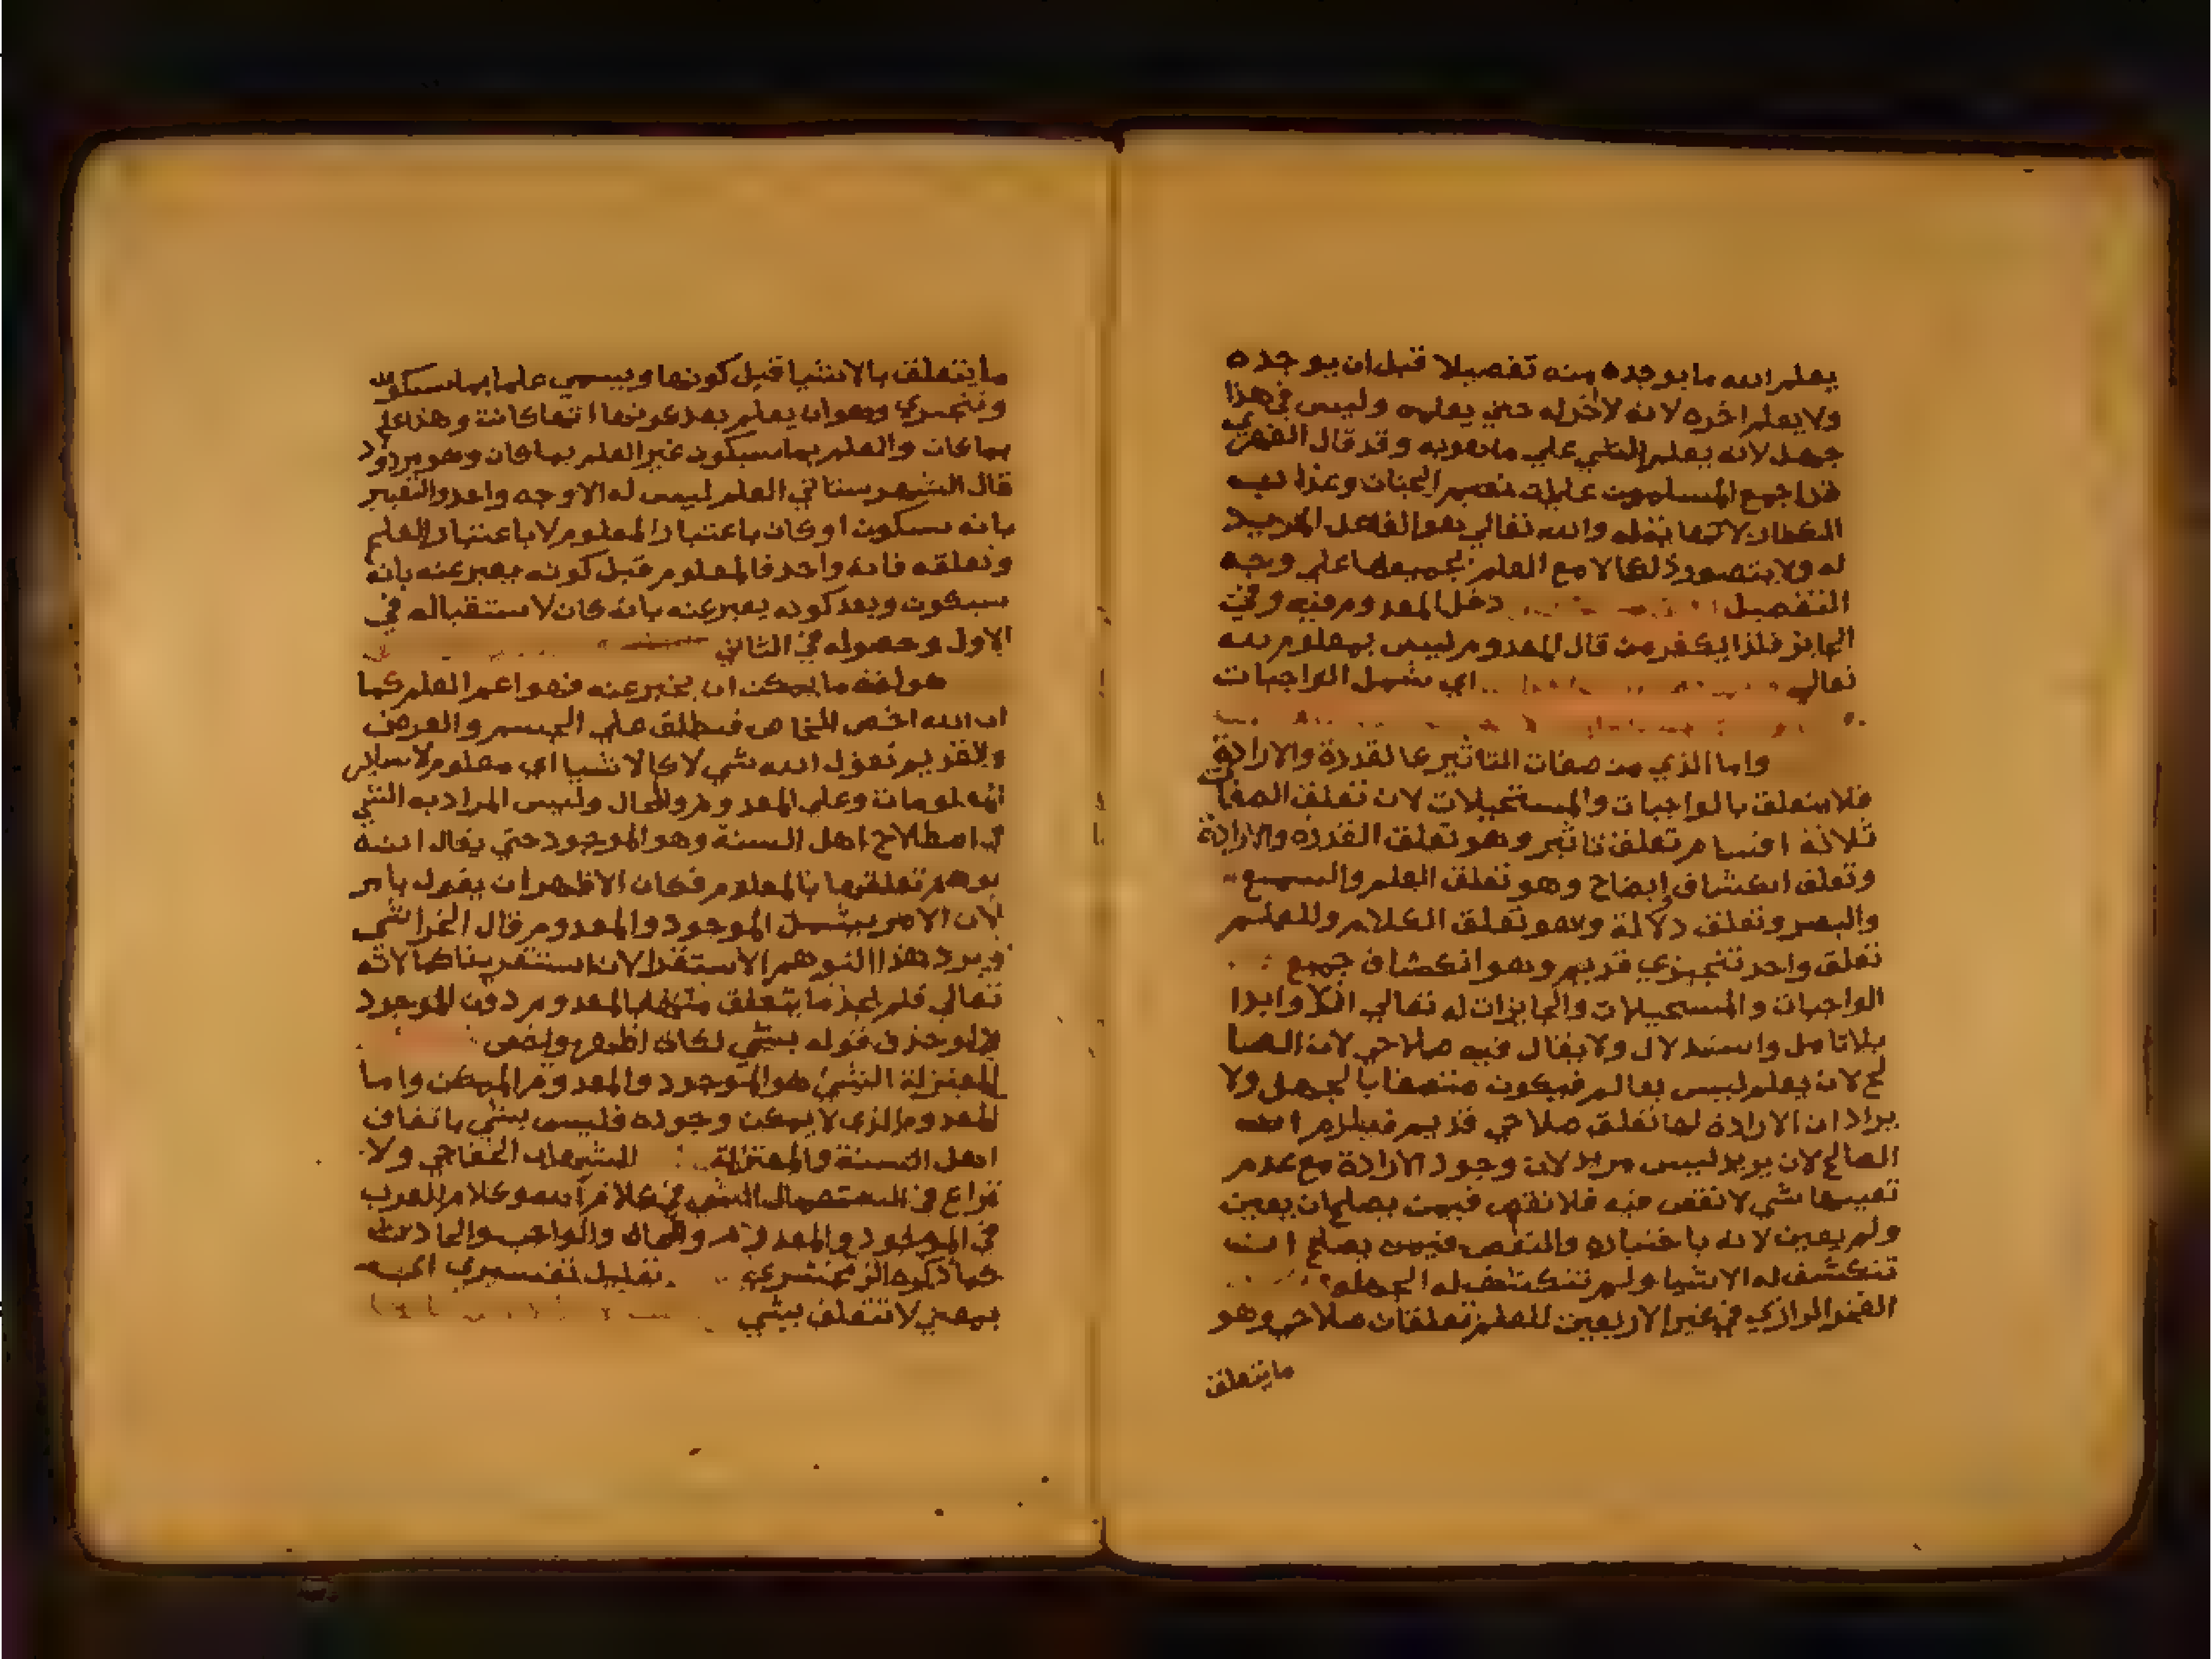 يعلم الله ما يوجده منه تفصيلا قبل ان يوجده
ولا يعلم اخره لانه لا اخر له حتي يعلمه وليس في هذا
جهل لانه يعلم الشي علي ما هو به وقد قال الفهري
قد اجمع المسلمون علي ان نعيم الجنان وعذاب
الكفار لا نهاية له والله تعالي هو الفاعل المريد
له ولا يتصور ذلك الا مع العلم بجميعها علي وجه
التفصيل دخل المعدوم فيه وفي
الجايز فلذا يكفر من قال المعدوم ليس بمعلوم لله
تعالي اي شمل الواجبات
واما الذي من صفات التاثير كالقدرة والارادة
فلا يتعلق بالواجبات والمستحيلات لان تعلق الصفات
ثلاثة اقسام تعلق تاثير وهو تعلق القدرة والارادة
وتعلق انكشاف إيضاح وهو تعلق العلم والسمع
والبصر وتعلق دلالة وهو تعلق الكلام وللعلم
تعلق واحد تنجيزي قديم وهو انكشاف جميع
الواجبات والمستحيلات والجايزات له تعالي ازلا وابدا
بلا تامل واستدلال ولا يقال فيه صلاحي لان الصا
لح لان يعلم ليس بعالم فيكون متصفا بالجهل ولا
يراد ان الارادة لها تعلق صلاحي قديم فيلزم انه
الصالح لان يريد ليس مريد لان وجود الارادة مع عدم
تعيينها شي لا نقص فيه فلا نقص فيمن يصلح ان يعين
ولم يعين لانه باختياره والنقص فيمن يصلح انه
تنكشف له الاشيا ولم تنكشف له الجهله
الفخر الرازي في غير الاربعين للعلم تعلقان صلاحي وهو
ما يتعلق
ما يتعلق بالاشيا قبل كونها ويسمي علما بما سيكون
وتنجيزي وهو ان يعلم بعد كونها انها كانت وهذا علم
بما كان والعلم بما سيكون غير العلم بما كان وهو مردود
قال الشهرستاني العلم ليس له الا وجه واحد والتعبير
بانه سيكون او كان باعتبار المعلوم لا باعتبار العلم
وتعلقه فانه واحد فالمعلوم قبل كونه يعبر عنه بانه
سيكون وبعد كونه يعبر عنه بانه كان لاستقباله في
الاول وحصوله في الثاني
هو لغة ما يمكن ان يخبر عنه فهو اعم العلم كما
ان الله اخص الخاص فيطلق علي الجسم والعرض
والقديم تقول الله شي لا كالاشيا اي معلوم لا ساير
المعلومات وعلي المعدوم والمحال وليس المراد به الشي
في اصطلاح اهل السنة وهو الموجود حتي يقال انه
يوهم تعلقها بالمعلوم فكان الاظهر ان يقول بامر
لان الامر يشمل الموجود والمعدوم قال الخراشي
ويرد هذا التوهم الاستقرا لاننا استقرينا كمالاته
تعالي فلم نجد ما يتعلق منها بالمعدوم دون الموجود
ولو حذف قوله بشي لكان اظهر واخص
للمعتزلة الشئ هو الموجود والمعدوم الممكن واما
المعدوم الذي لا يمكن وجوده فليس بشي باتفاق
اهل السنة والمعتزلة للشهاب الخفاجي ولا
نزاع في استعمال الشي في كلام الله وكلام العرب
في الموجود والمعدوم والمحال والواجب والحادث
كما ذكره الزمخشري تعليل تفسيري
بمعني لا تتعلق بشي